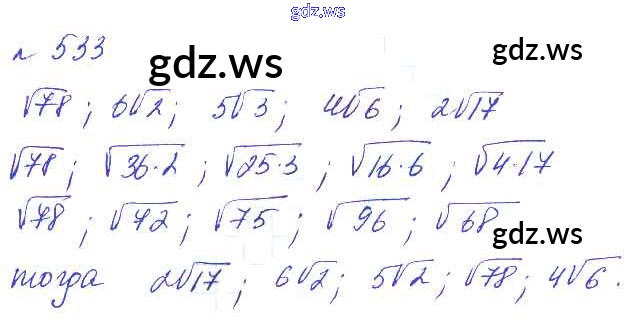 gdz.ws
№ 533
gdz.ws
gdz.ws
√78; 6√2; 5√3; 4√6; 2√17
√78; √36·2; √25·3; √16·6; √4·17
√78; √72; √75; √96; √68
gdz.ws
тогда 2√17; 6√2; 5√2; √78; 4√6.